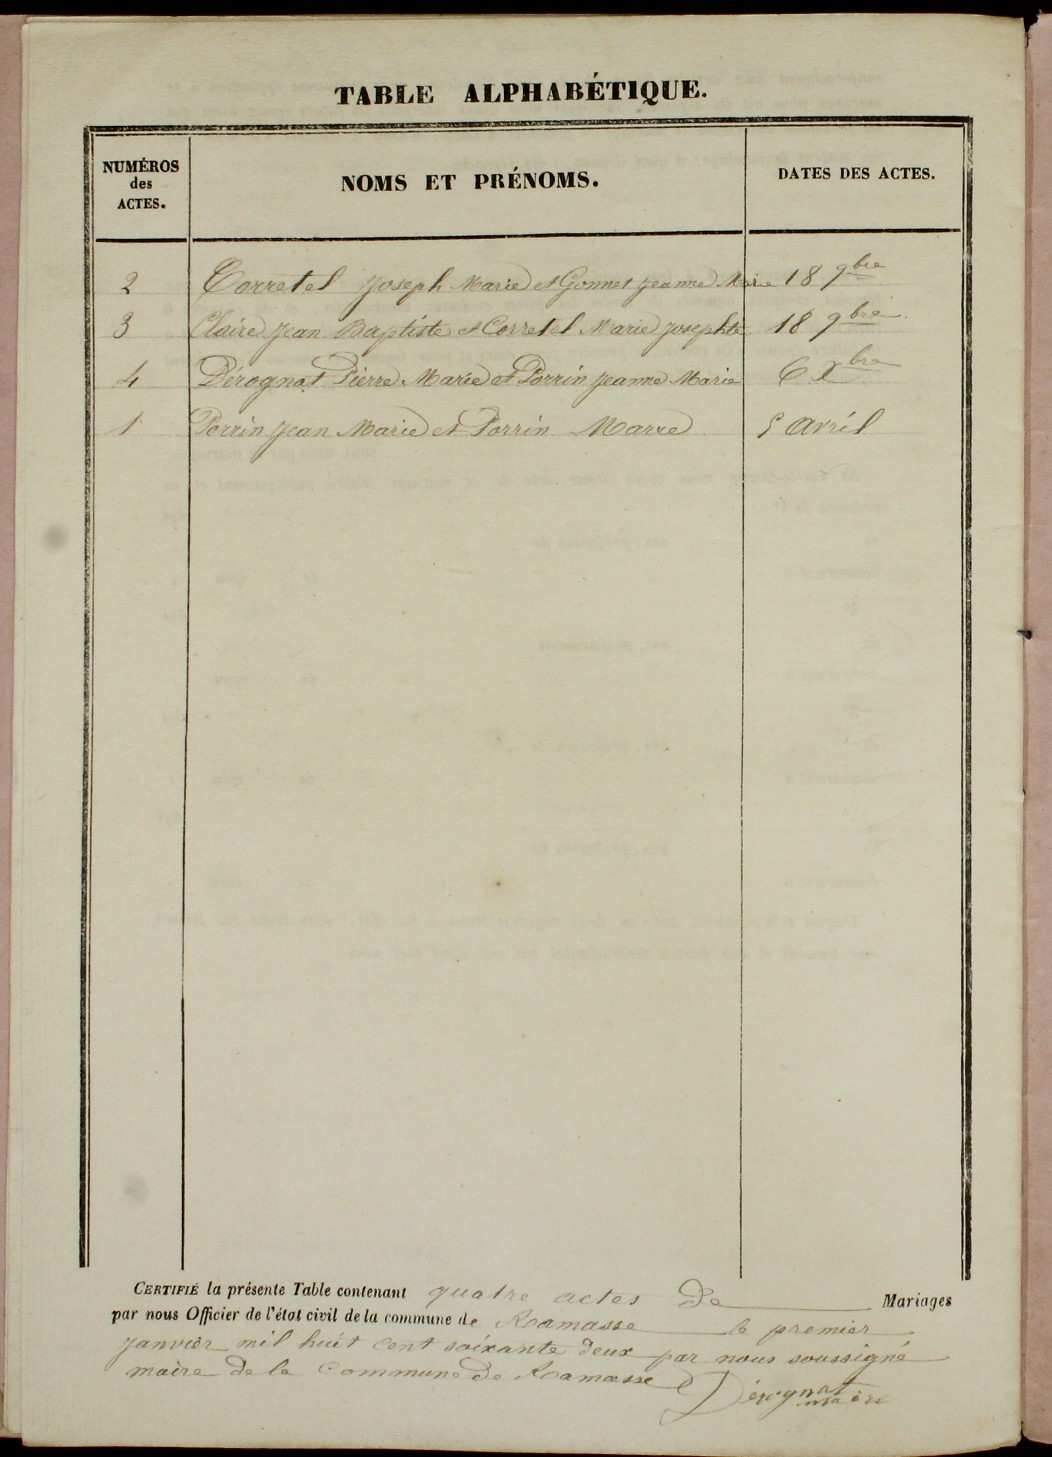 TABLE ALPHABÉTIQUE.
NUMÉROS
des
ACTES.
NOMS ET PRÉNOMS.
DATES DES ACTES.
2 Corretel Joseph Marie et Gonnet Jeanne Marie 18 9bre
3 Claire Jean Baptiste et Corretel Marie Josephte 18 9bre
4 Dérognat Pierre Marie et Perrin Jeanne Marie 6 Xbre
1 Perrin Jean Marie et Perrin Marie 5 Avril
CERTIFIÉ la présente Table contenant quatre actes De Mariages
par nous Officier de l'état civil de la commune de Ramasse le premier
janvier mil huit cent soixante deux par nous soussigné
maire de la Commune de Ramasse
Dérognat
maire